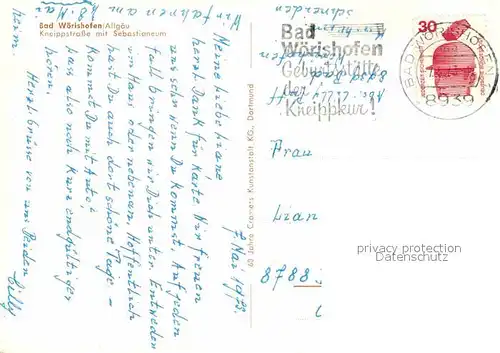 Bad Wörishofen/Allgäu
Kneippstraße mit Sebastianeum
Wir fahren am 18. Mai
heim.
7. Mai 1973
Meine liebe Liane,
herzl. Dank für Karte. Wir freuen
uns sehr wenn Du kommst. Auf jeden
Fall bringen wir Dich unter. Entweder
im Haus oder nebenan. Hoffentlich
hast Du auch dort schöne Tage –
Kommst Du mit Auto?
Lass also noch kurz endgültiges
hören.
Herzl. Grüsse von uns Beiden
Cilly
60 Jahre Cramers Kunstanstalt KG., Dortmund
Bad
Wörishofen
Geburtsstätte
der
Kneippkur!
30
BAD WÖRISHOFEN
8939
Frau
Lian
8788
privacy protection
Datenschutz